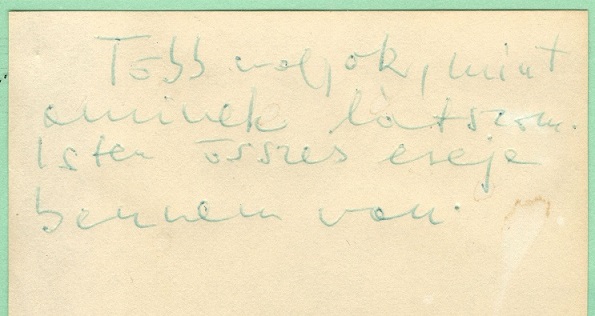 Több vagyok, mint
aminek látszom.
Isten összes ereje
bennem van.